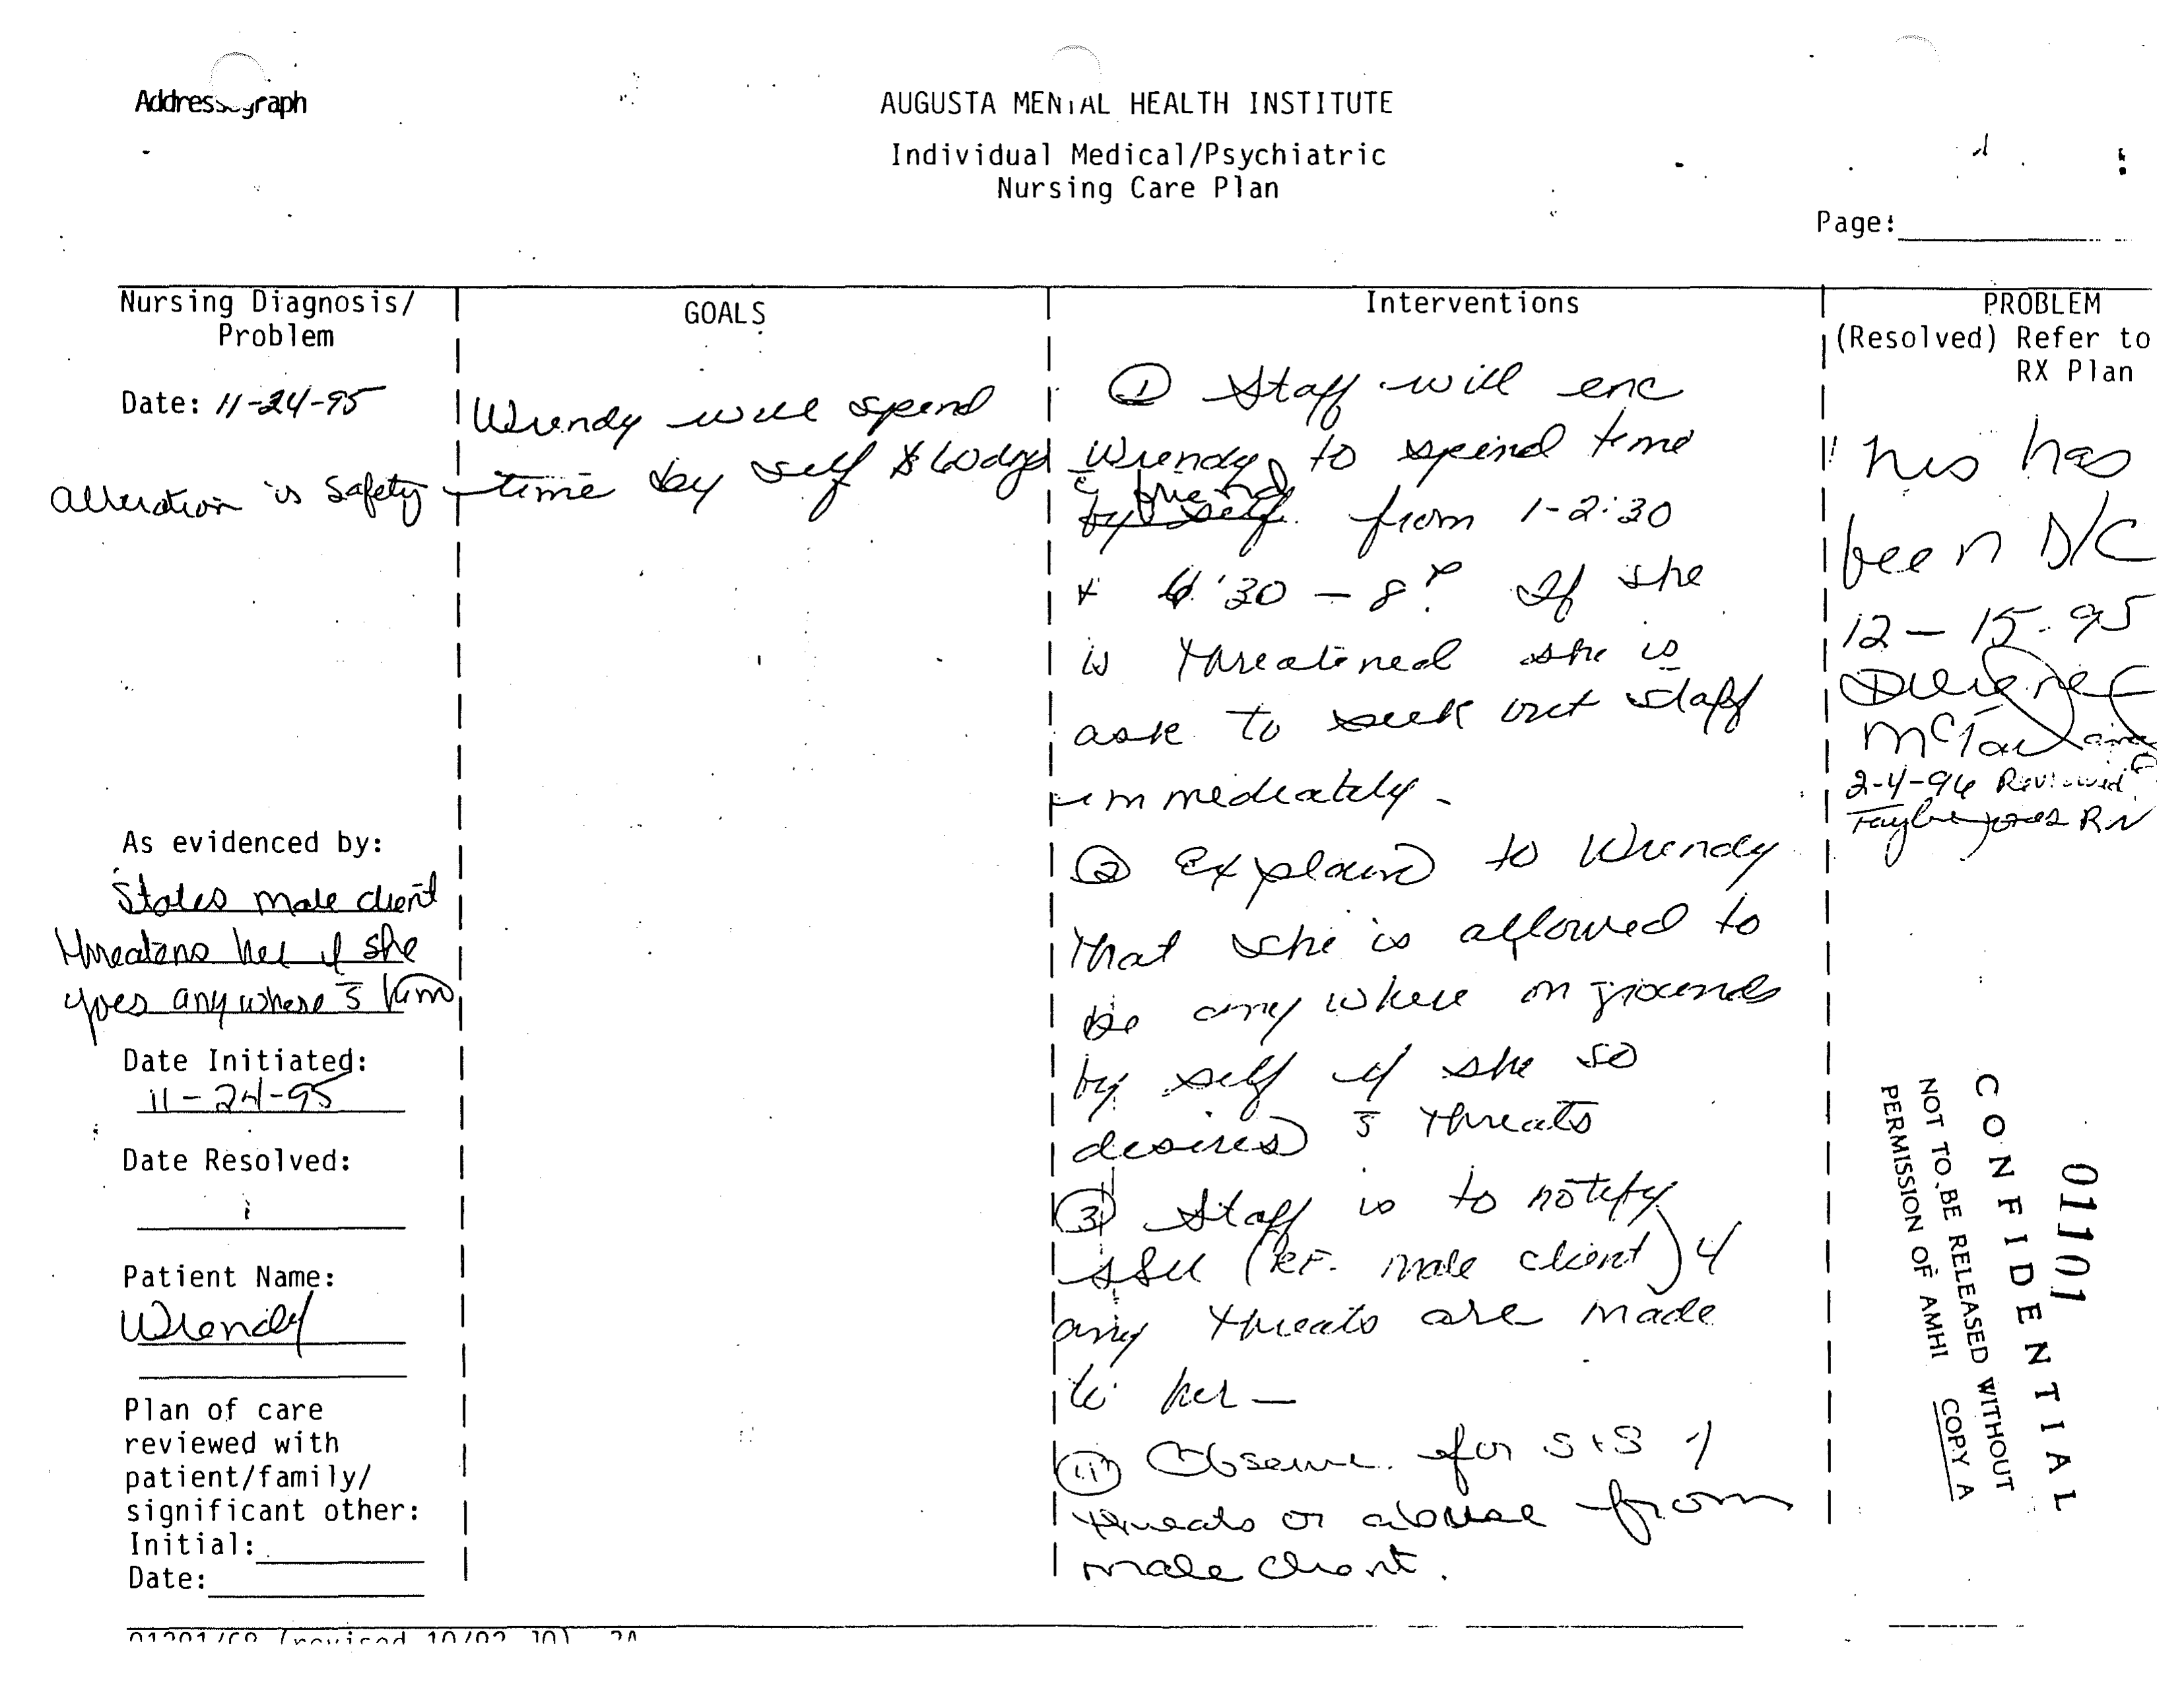 Addressograph
AUGUSTA MENTAL HEALTH INSTITUTE
Individual Medical/Psychiatric
Nursing Care Plan
Page:
Nursing Diagnosis/
Problem
Date: 11-24-95
alteration is safety
As evidenced by:
States male client
threatens her if she
goes anywhere s̄ him
Date Initiated:
11-24-95
Date Resolved:
Patient Name:
Wrendy
Plan of care
reviewed with
patient/family/
significant other:
Initial:
Date:
GOALS
Wrendy will spend
time by self 60 days
Interventions
① Staff will enc
Wrendy to spend time
c̄ friend
by self from 1-2:30
+ 6:30 - 8 P If she
is threatened she is
ask to seek out staff
immediately.
② Explain to Wrendy
that she is allowed to
be any where on grounds
by self if she so
desires s̄ threats
③ Staff is to notify
SSU (RE. male client) if
any threats are made
to her —
④ Observe for S+S of
threats or abuse from
male client.
PROBLEM
(Resolved) Refer to
RX Plan
This has
been D/C
12-15-95
2-4-96 Reviewed
Jones RN
01101
CONFIDENTIAL
NOT TO BE RELEASED WITHOUT
PERMISSION OF AMHI COPY A